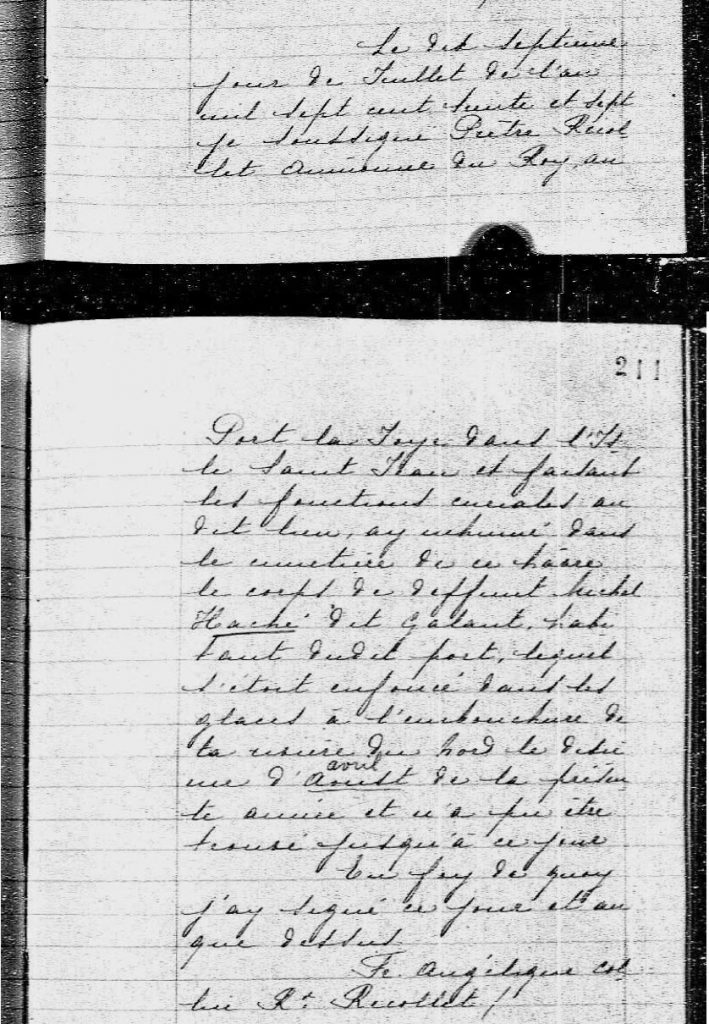 Le dix septieme
jour de Juillet de l'an
mil sept cent trente et sept
je soussigné Prêtre Recol
let aumonier du Roy, au
211
Port la Joye dans l'Is
le Saint Jean et faisant
les fonctions curiales au
dit lieu, ay inhumé dans
le cimetière de ce hâvre
le corps de deffunt Michel
Haché dit Galant, habi
tant dudit port, lequel
s'étoit enfoncé dans les
glaces à l'embouchure de
la rivière du Nord le dixiè
avril
me d'Aoust de la présen
te année et n'a pu être
trouvé jusqu'à ce jour
En foy de quoy
j'ay signé ce jour et an
que dessus
Fe. Angélique Col
lin Rt. Recollet /